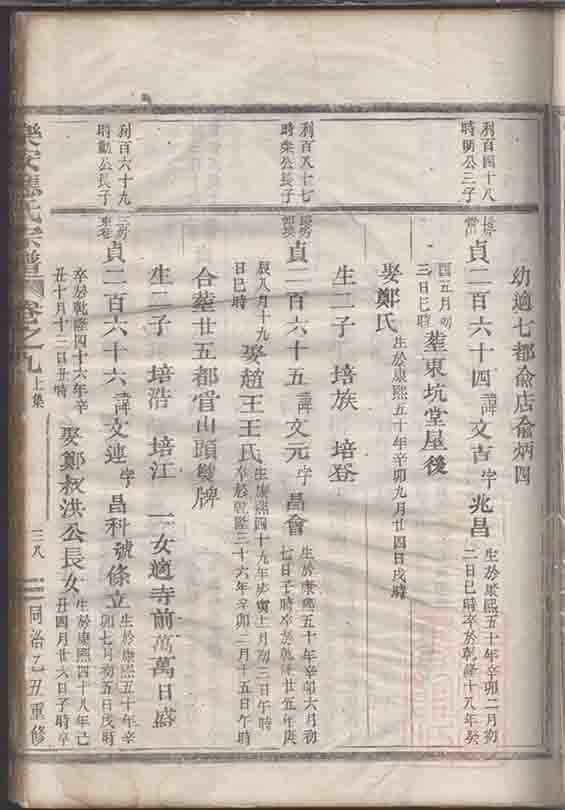 幼適七都俞店俞炳四
利百四十八
時朗公三子
貞二百六十四 諱文吉字兆昌
生於康熙五十年辛卯二月初
二日巳時卒於乾隆十八年癸
酉五月初
三日巳時
葬東坑堂屋後
娶鄭氏
生於康熙五十年辛卯九月廿四日戌時
生二子 培族 培登
利百八十七
時榮公長子
貞二百六十五 諱文元字昌會
生於康熙五十年辛卯六月初
七日子時卒於乾隆廿五年庚
辰八月十九
日巳時
娶趙王王氏
生康熙四十九年庚寅十一月初三日午時
卒於乾隆三十六年辛卯二月十五日午時
合葬廿五都官山頭雙牌
生二子 培浩 培江 一女適寺前萬萬日盛
利百六十九
時勳公長子
三房
貞二百六十六 諱文連字昌科號條立
生於康熙五十年辛
卯七月初五日戌時
卒於乾隆四十六年辛
丑十月十二日丑時
娶鄭叔洪公長女
生於康熙四十八年己
丑四月廿六日子時卒
樂安氏宗譜 卷之九 上集 三八 同治乙丑重修